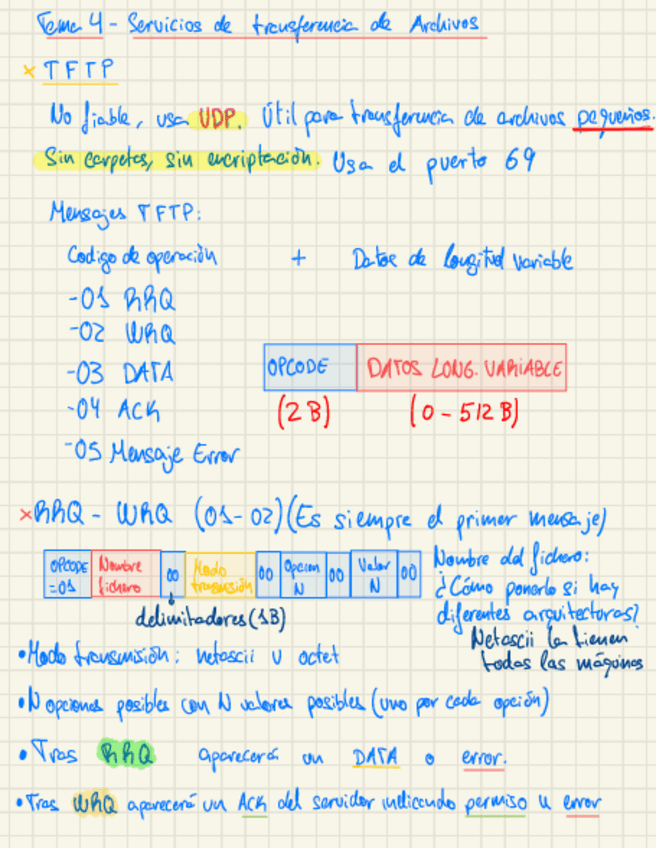 Tema 4 - Servicios de transferencia de Archivos
× TFTP
No fiable, usa UDP. Útil para transferencia de archivos pequeños.
Sin carpetas, sin encriptación. Usa el puerto 69
Mensajes TFTP:
Codigo de operación + Datos de longitud variable
-01 RRQ
-02 WRQ
-03 DATA
-04 ACK
-05 Mensaje Error
OPCODE DATOS LONG. VARIABLE
(2B) (0-512B)
×RRQ - WRQ (01-02)(Es siempre el primer mensaje)
OPCODE =01 Nombre fichero 00 Modo transmisión 00 Opcion N 00 Valor N 00
delimitadores (1B)
Nombre del fichero:
¿Cómo ponerlo si hay
diferentes arquitecturas?
Netascii la tienen
todas las máquinas
•Modo transmisión: netascii u octet
•N opciones posibles con N valores posibles (uno por cada opción)
•Tras RRQ aparecerá un DATA o error.
•Tras WRQ aparecerá un ACK del servidor indicando permiso u error